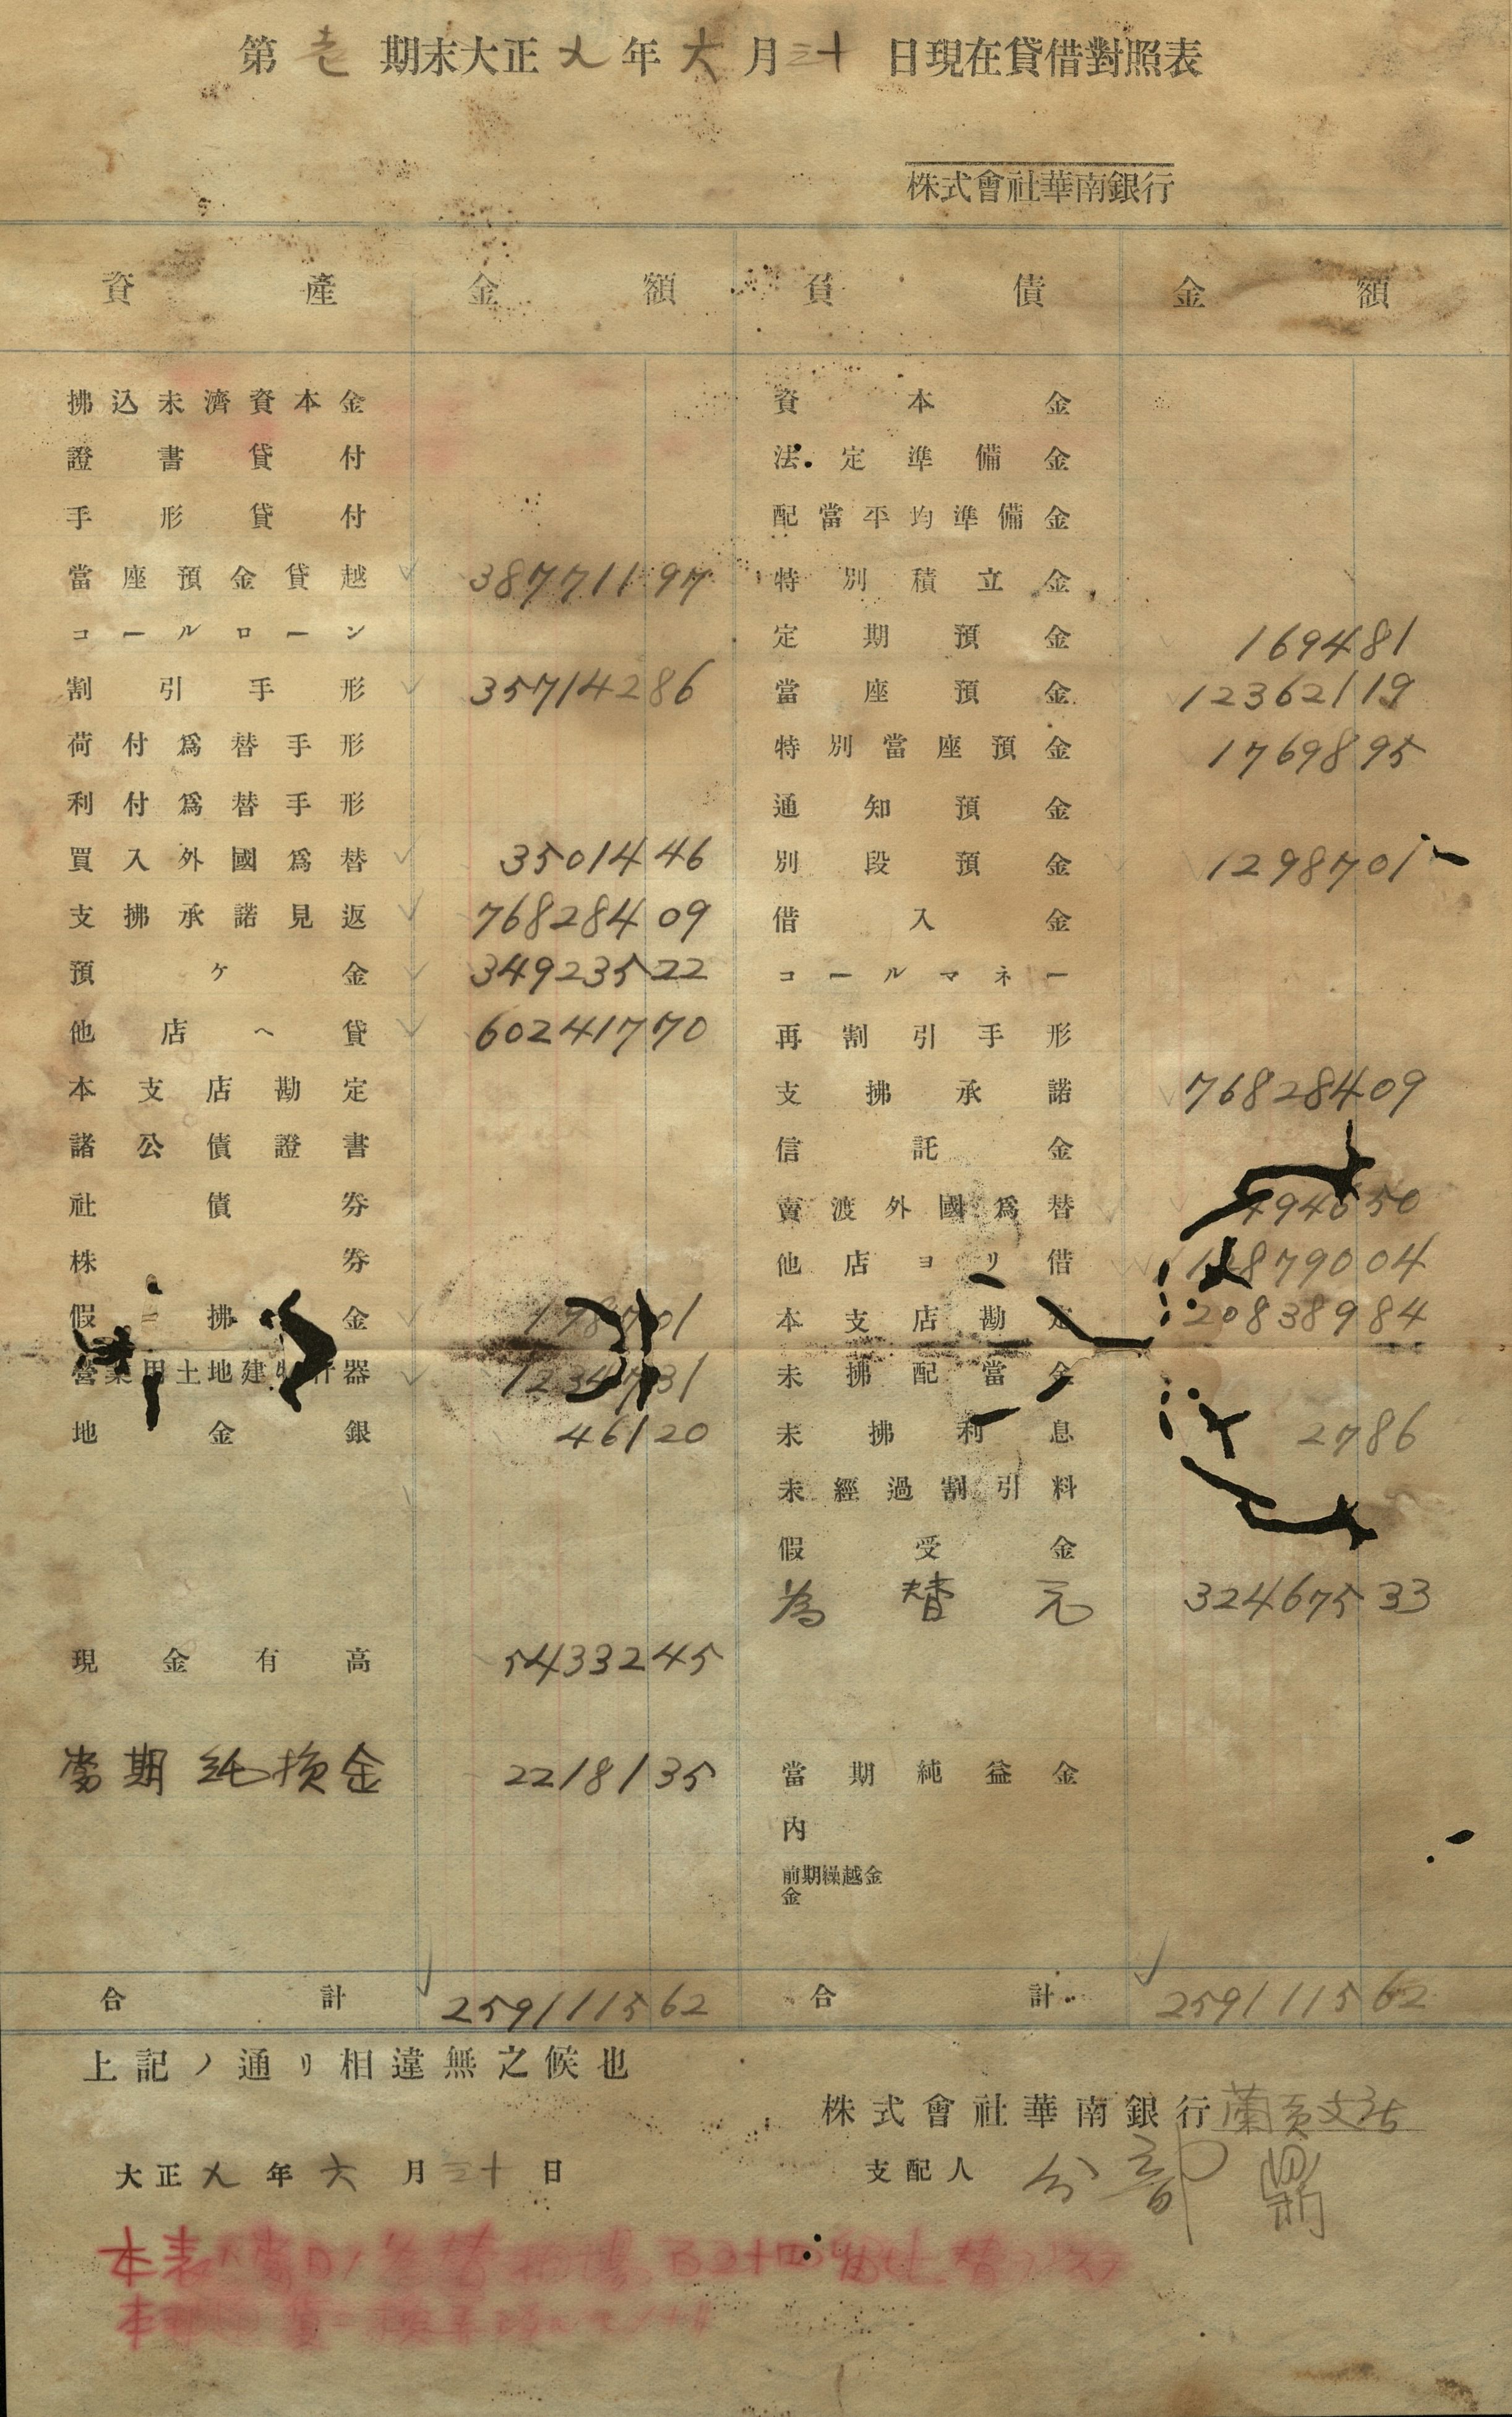 第壱期末大正九年六月三十日現在貸借對照表
株式會社華南銀行
資產 金額 負債 金額
拂込未濟資本金 資本金
證書貸付 法定準備金
手形貸付 配當平均準備金
當座預金貸越 38771197 特別積立金
コールローン 定期預金 169481
割引手形 35714286 當座預金 12362119
荷付爲替手形 特別當座預金 1769895
利付爲替手形 通知預金
買入外國爲替 3501446 別段預金 1298701
支拂承諾見返 76828409 借入金
預ケ金 34923522 コールマネー
他店ヘ貸 60241770 再割引手形
本支店勘定 支拂承諾 76828409
諸公債證書 信託金
社債券 賣渡外國爲替
株券 他店ヨリ借
假拂金 本支店勘定 20838984
營業用土地建物什器 1234731 未拂配當金
地金銀 46120 未拂利息 2786
未經過割引料
假受金
為替元 32467533
現金有高 5433245
當期純損金 2218135 當期純益金
内
前期繰越金
金
合計 259111562 合計 259111562
上記ノ通リ相違無之候也
株式會社華南銀行蘭貢支店
大正九年六月三十日 支配人 分部 鼎